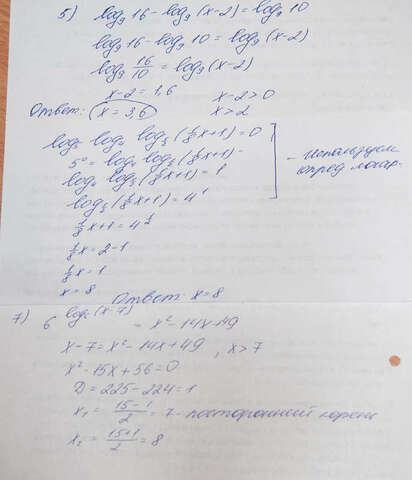 5) log₉ 16 - log₉ (x-2) = log₉ 10
log₉ 16 - log₉ 10 = log₉ (x-2)
log₉ 16/10 = log₉ (x-2)
x-2 = 1,6 x-2>0
Ответ: x = 3,6 x>2
log₅ log₄ log₅ (1/8x+1) = 0
5⁰ = log₄ log₅ (1/8x+1) - Используем
log₄ log₅ (1/8x+1) = 1 опред логар.
log₅ (1/8x+1) = 4¹
1/8x+1 = 4^½
1/8x = 2-1
1/8x = 1
x = 8
Ответ: x = 8
7) 6 log₆ (x-7) = x² - 14x+49
x-7 = x² - 14x + 49 , x>7
x² - 15x + 56 = 0
D = 225 - 224 = 1
x₁ = 15-1/2 = 7 - посторонний корень
x₂ = 15+1/2 = 8